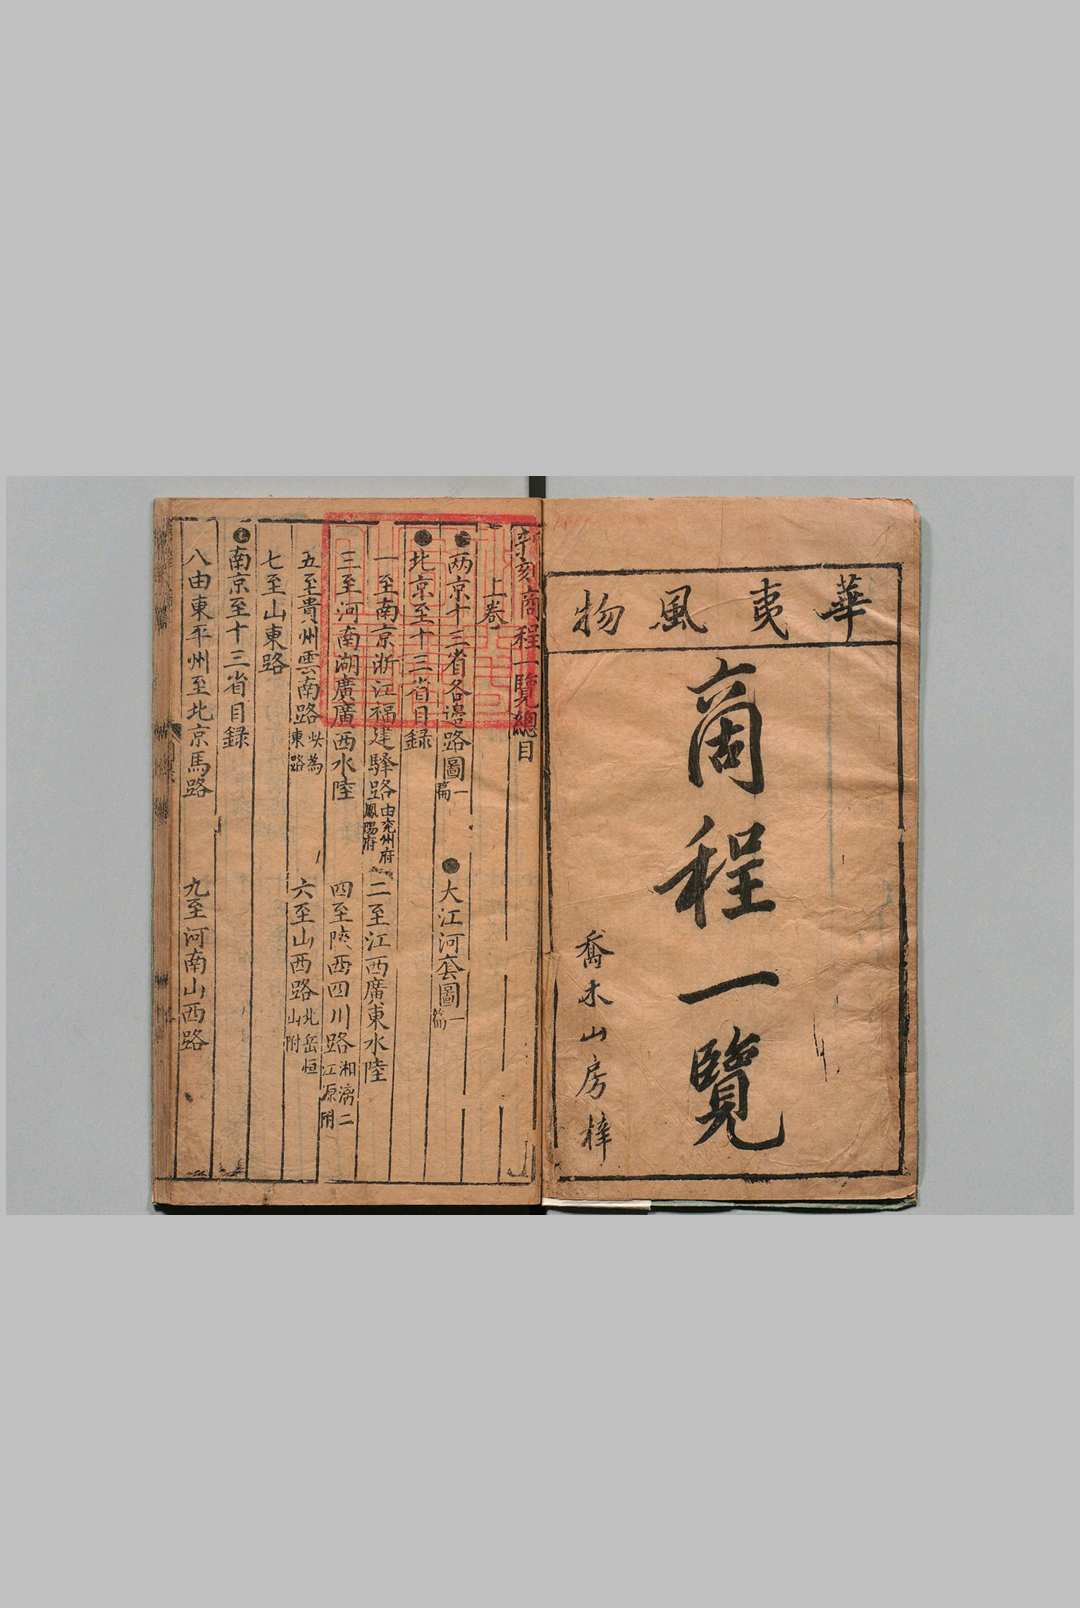 華夷風物
商程一覽
喬木山房梓
辛亥商程一覽總目
上卷
兩京十三省各邊路圖一篇 大江河套圖一篇
北京至十三省目録
一至南京浙江福建驛路由兖州府鳳陽府 二至江西廣東水陸
三至河南湖廣廣西水陸 四至陝西四川路湘漓二江源附
五至貴州雲南路 東路 六至山西路北岳恒山附
七至山東路
南京至十三省目録
八由東平州至北京馬路 九至河南山西路